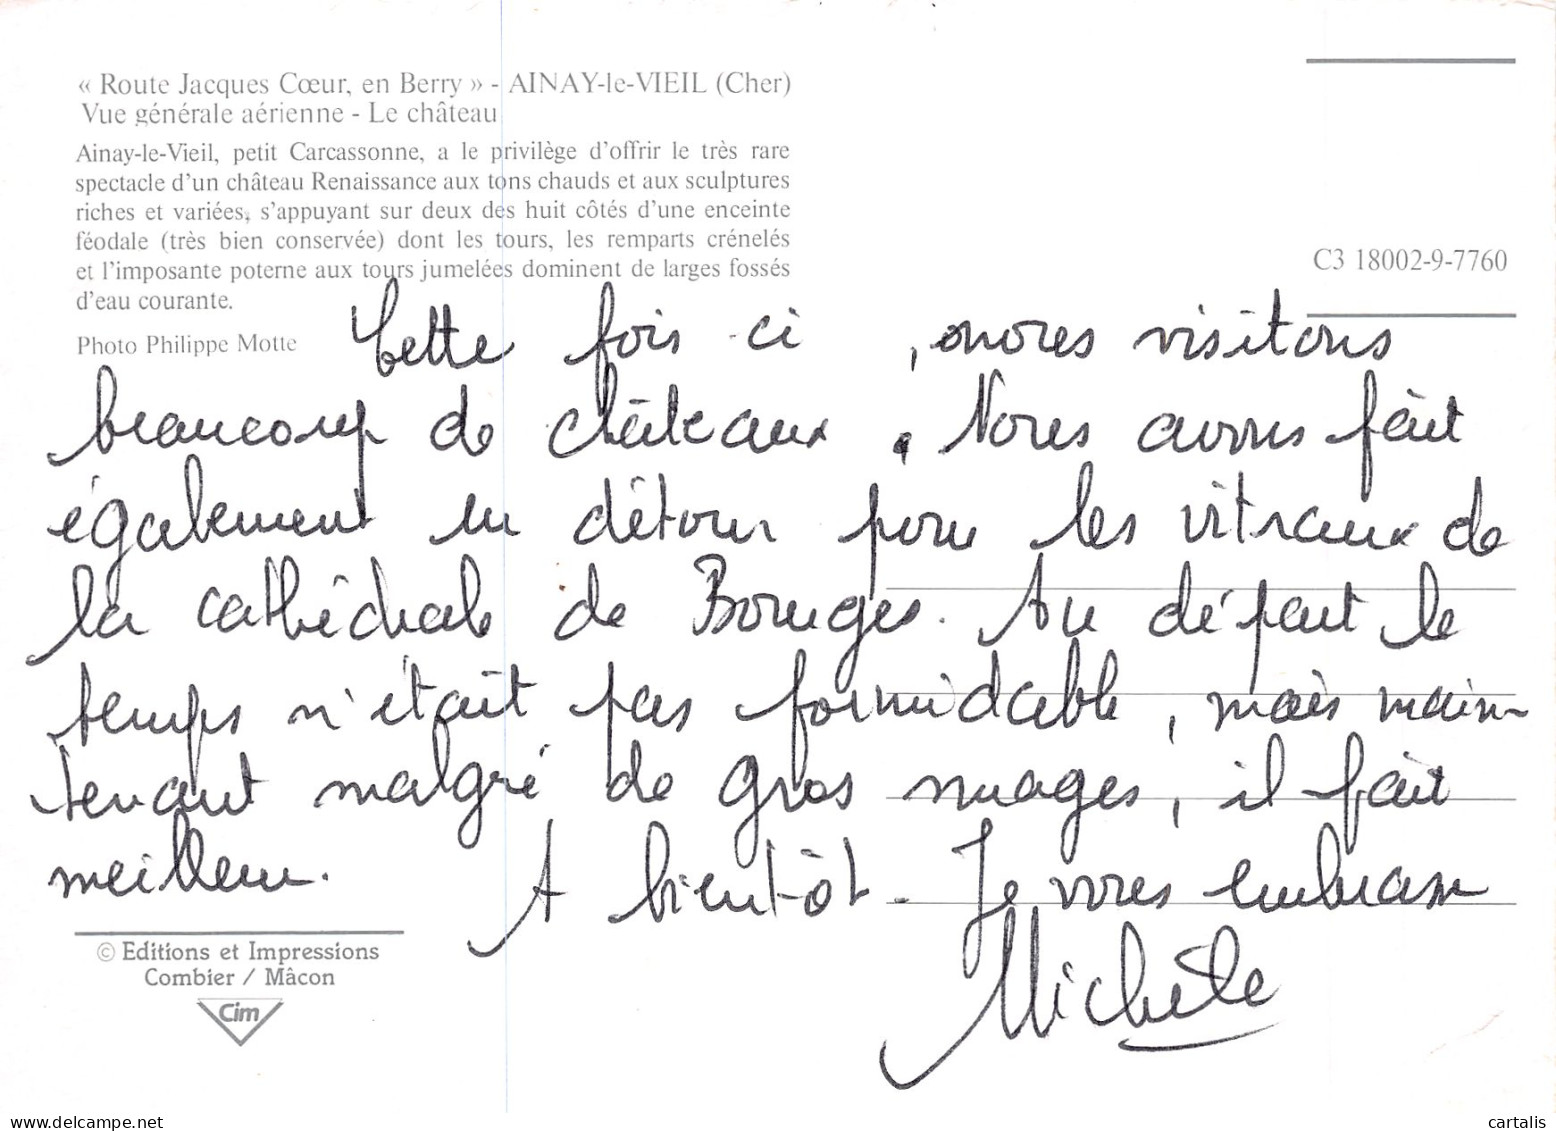 « Route Jacques Cœur, en Berry » - AINAY-le-VIEIL (Cher)
Vue générale aérienne - Le château
Ainay-le-Vieil, petit Carcassonne, a le privilège d'offrir le très rare
spectacle d'un château Renaissance aux tons chauds et aux sculptures
riches et variées, s'appuyant sur deux des huit côtés d'une enceinte
féodale (très bien conservée) dont les tours, les remparts crénelés
et l'imposante poterne aux tours jumelées dominent de larges fossés
d'eau courante.
Photo Philippe Motte
C3 18002-9-7760
Cette fois-ci, nous visitons
beaucoup de châteaux. Nous avons fait
également un détour pour les vitraux de
la cathédrale de Bourges. Au départ le
temps n'était pas formidable, mais main-
tenant malgré de gros nuages, il fait
meilleur. A bientôt. Je vous embrasse
Michèle
© Editions et Impressions
Combier / Mâcon
Cim
delcampe.net
cartalis